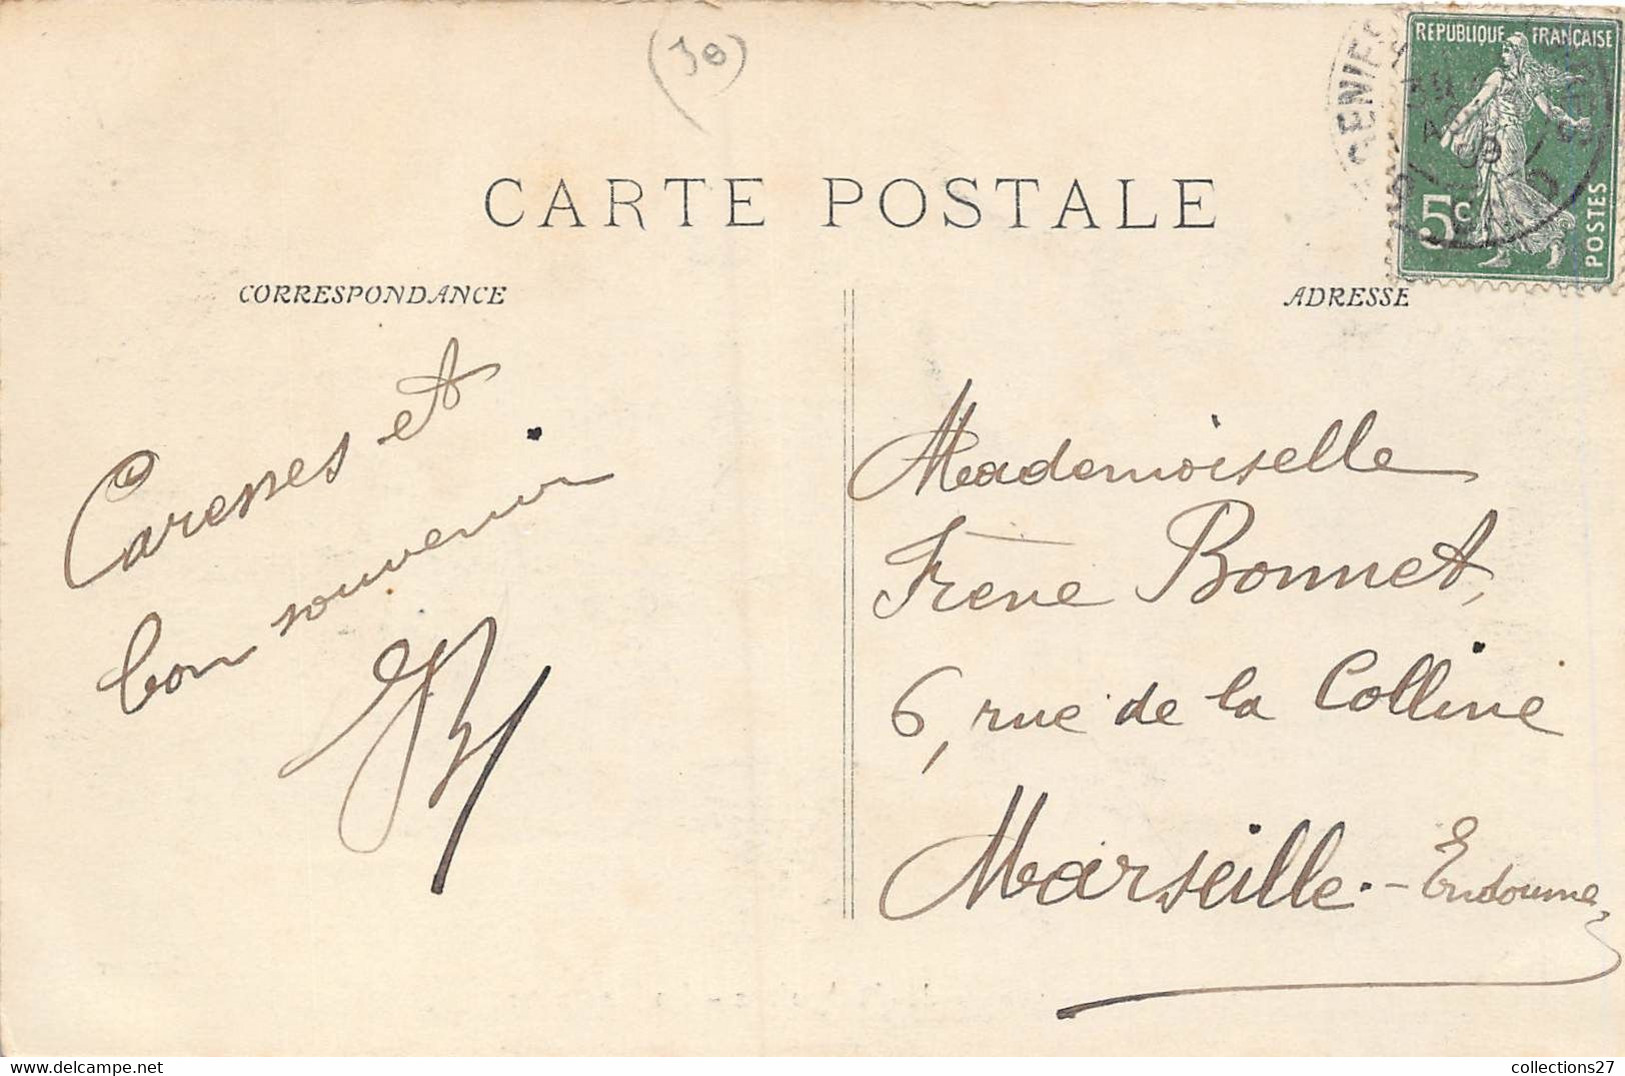 (30)
RÉPUBLIQUE FRANÇAISE
5c
POSTES
CARTE POSTALE
CORRESPONDANCE
ADRESSE
Caresses et
bon souvenir
Mademoiselle
Irène Bonnet,
6, rue de la Colline
Marseille.-Endoume
collections27